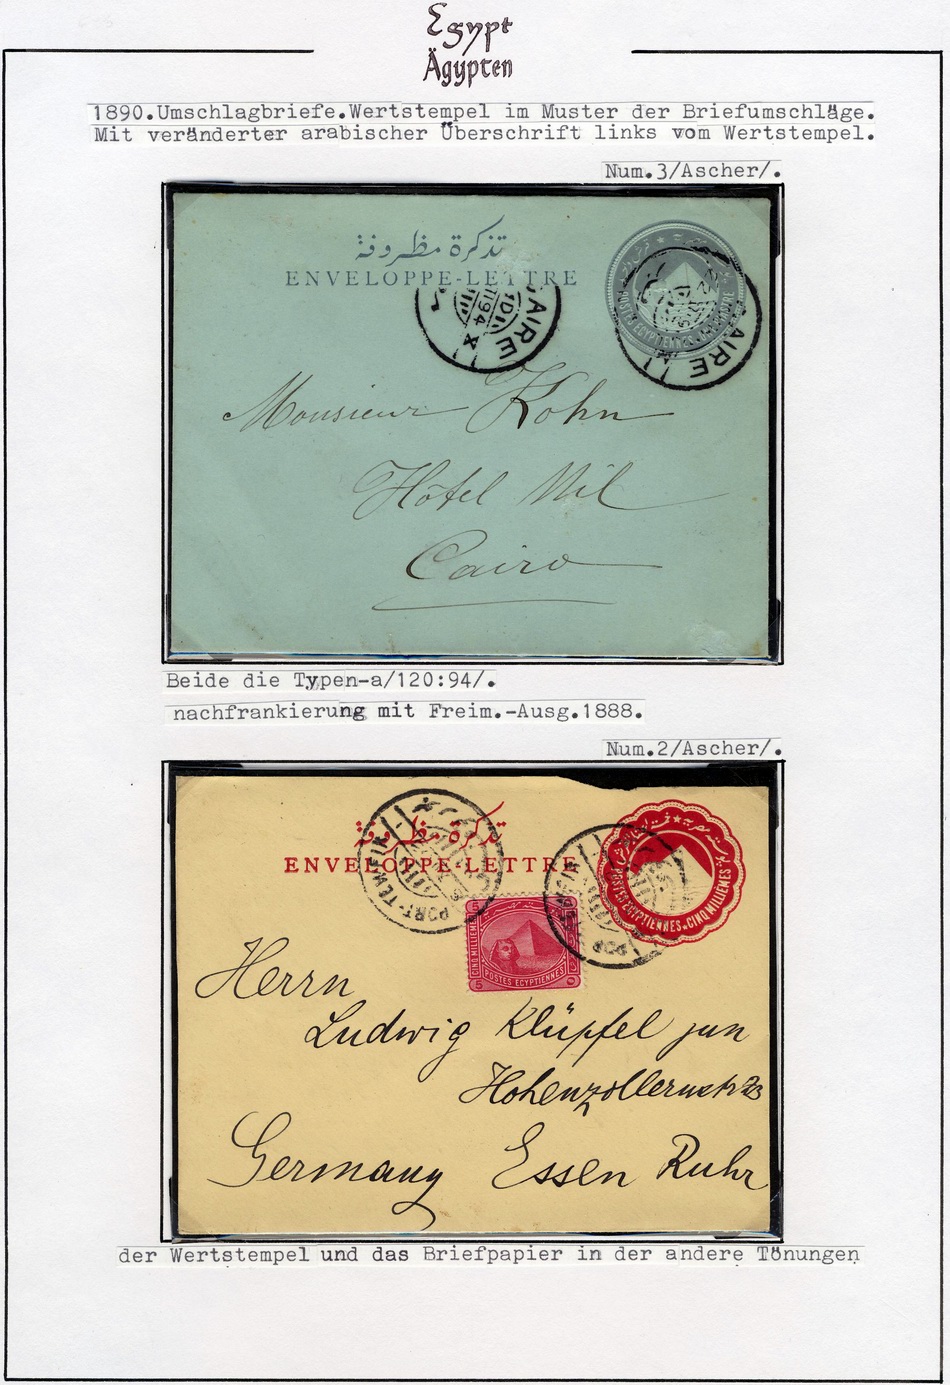 Egypt
Ägypten
1890.Umschlagbriefe.Wertstempel im Muster der Briefumschläge.
Mit veränderter arabischer Überschrift links vom Wertstempel.
Num.3/Ascher/.
تذكرة مظروفة
ENVELOPPE-LETTRE
POSTES EGYPTIENNES
CAIRE
CAIRE
X 94
Monsieur Kohn
Hôtel Nil
Cairo
Beide die Typen-a/120:94/.
nachfrankierung mit Freim.-Ausg.1888.
Num.2/Ascher/.
تذكرة مظروفة
ENVELOPPE-LETTRE
POSTES EGYPTIENNES CINQ MILLIEMES
PORT-TEWFIK
5 CINQ MILLIEMES
POSTES EGYPTIENNES
5
Herrn
Ludwig Klüpfel jun
Hohenzollernstr 23
Germany Essen Ruhr
der Wertstempel und das Briefpapier in der andere Tönungen